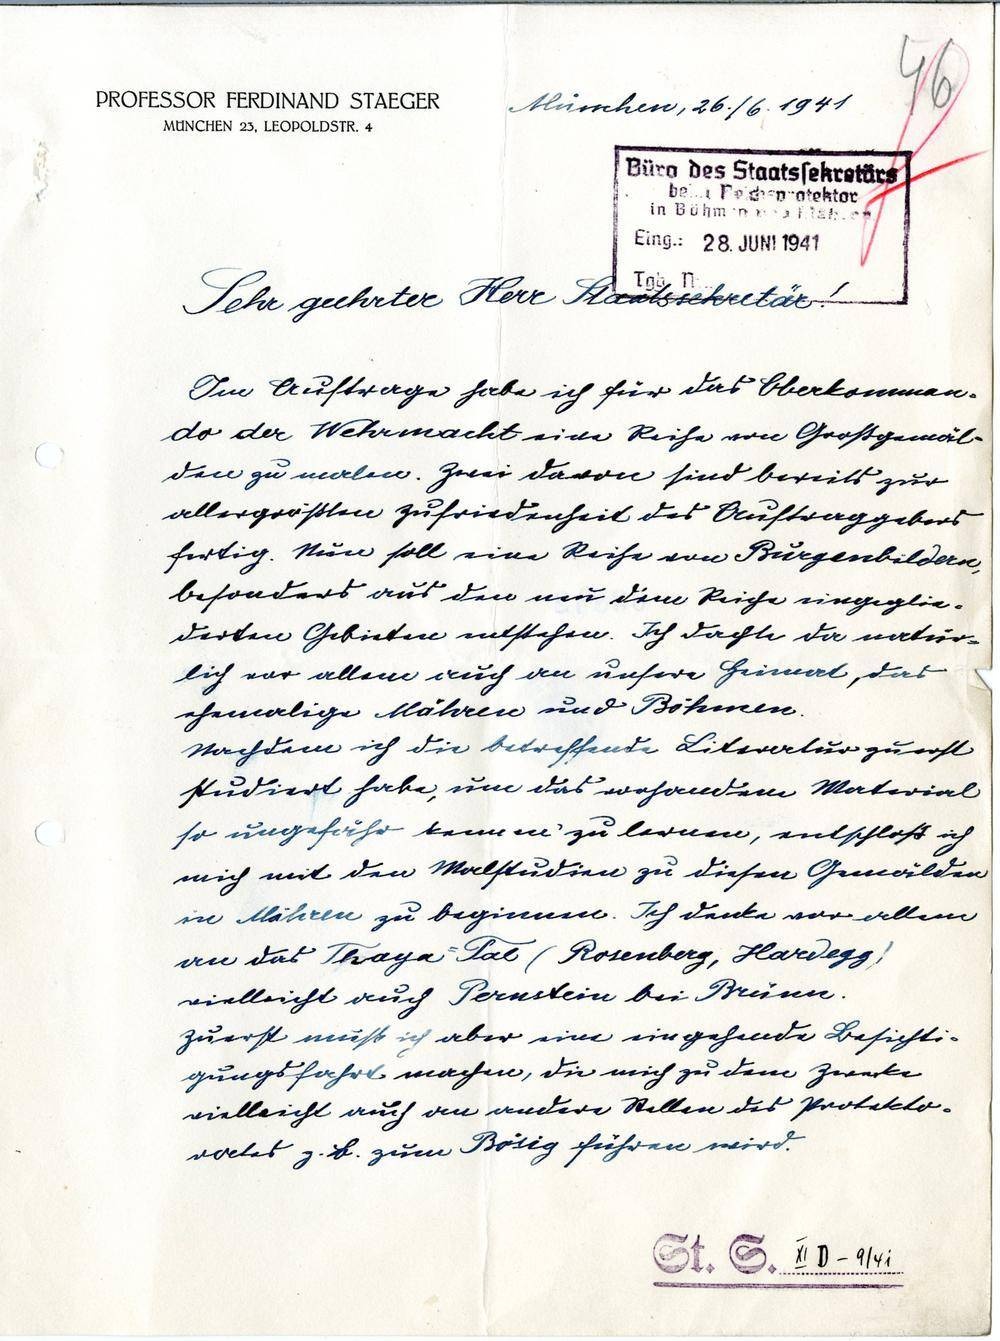 46
PROFESSOR FERDINAND STAEGER
MÜNCHEN 23, LEOPOLDSTR. 4
München, 26./6. 1941
Büro des Staatssekretärs
beim Reichsprotektor
in Böhmen und Mähren
Eing.: 28. JUNI 1941
Tgb. N
Sehr geehrter Herr Staatssekretär!
Im Auftrage habe ich für das Oberkomman-
do der Wehrmacht eine Reihe von Großgemäl-
den zu malen. Zwei davon sind bereits zur
allergrößten Zufriedenheit des Auftraggebers
fertig. Nun soll eine Reihe von Burgenbildern,
besonders aus den neu dem Reiche eingeglie-
derten Gebieten entstehen. Ich dachte da natür-
lich vor allem auch an unsere Heimat, das
ehemalige Mähren und Böhmen.
Nachdem ich die betreffende Literatur zuerst
studiert habe, um das vorhandene Material
so ungefähr kennen zu lernen, entschloß ich
mich mit den Malstudien zu diesen Gemälden
in Mähren zu beginnen. Ich denke vor allem
an das Thaya-Tal (Rosenberg, Hardegg)
vielleicht auch Pernstein bei Brünn.
Zuerst muß ich aber eine eingehende Besichti-
gungsfahrt machen, die mich zu dem Zwecke
vielleicht auch an andere Stellen des Protekto-
rates z.B. zum Bösig führen wird.
St. S. XI D - 9/41